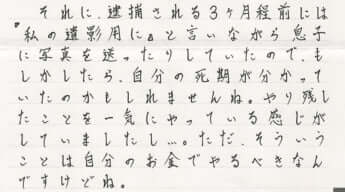 それに、逮捕される3ヶ月程前には
私の遺影用に。と言いながら息子
に写真を送ったりしていたので、も
しかしたら、自分の死期が分かって
いたのかもしれませんね。やり残し
たことを一気にやっている感じが
していましたし…。ただ、そういう
ことは自分のお金でやるべきなん
ですけどね。